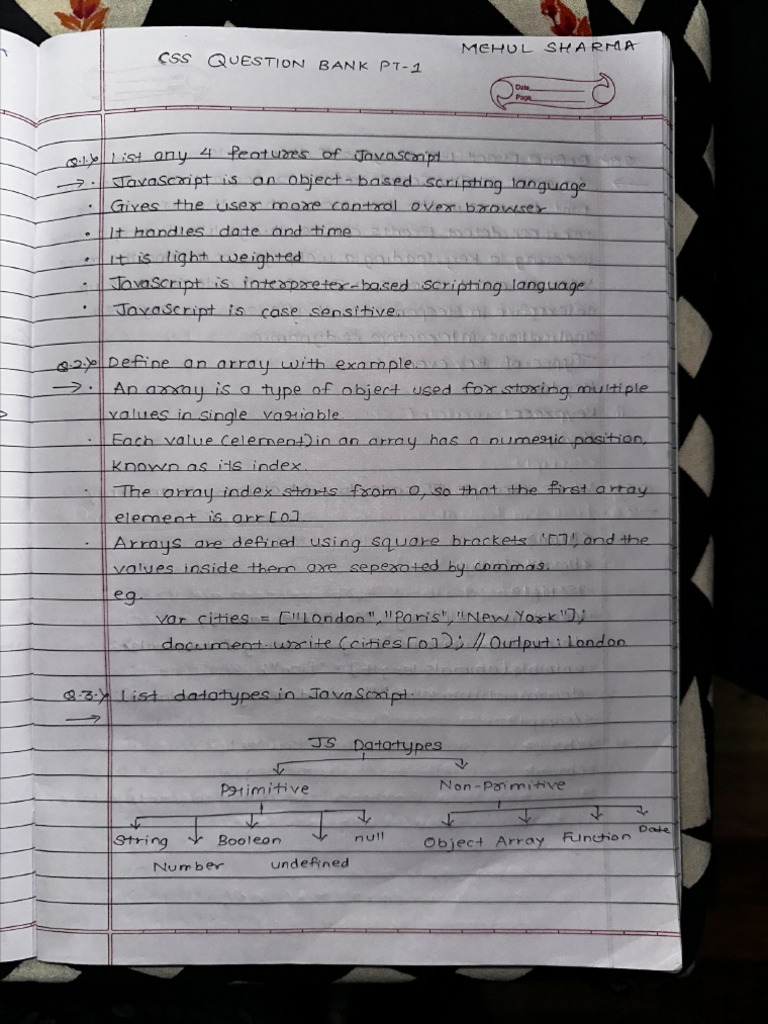 MEHUL SHARMA
CSS QUESTION BANK PT-1
Date
Page
Q.1.) List any 4 features of Javascript
→ • JavaScript is an object-based scripting language
• Gives the user more control over browser
• It handles date and time
• It is light weighted
• JavaScript is interpreter-based scripting language
• JavaScript is case sensitive.
Q.2.) Define an array with example.
→ • An array is a type of object used for storing multiple
values in single variable.
• Each value (element) in an array has a numeric position,
known as its index.
• The array index starts from 0, so that the first array
element is arr[0]
• Arrays are defined using square brackets '[]' and the
values inside them are seperated by commas.
eg.
var cities = ["London","Paris","New York"];
document.write(cities[0]); // Output: London
Q.3.) List datatypes in JavaScript.
→
JS Datatypes
Primitive Non-Primitive
String Boolean null Object Array Function Date
Number undefined